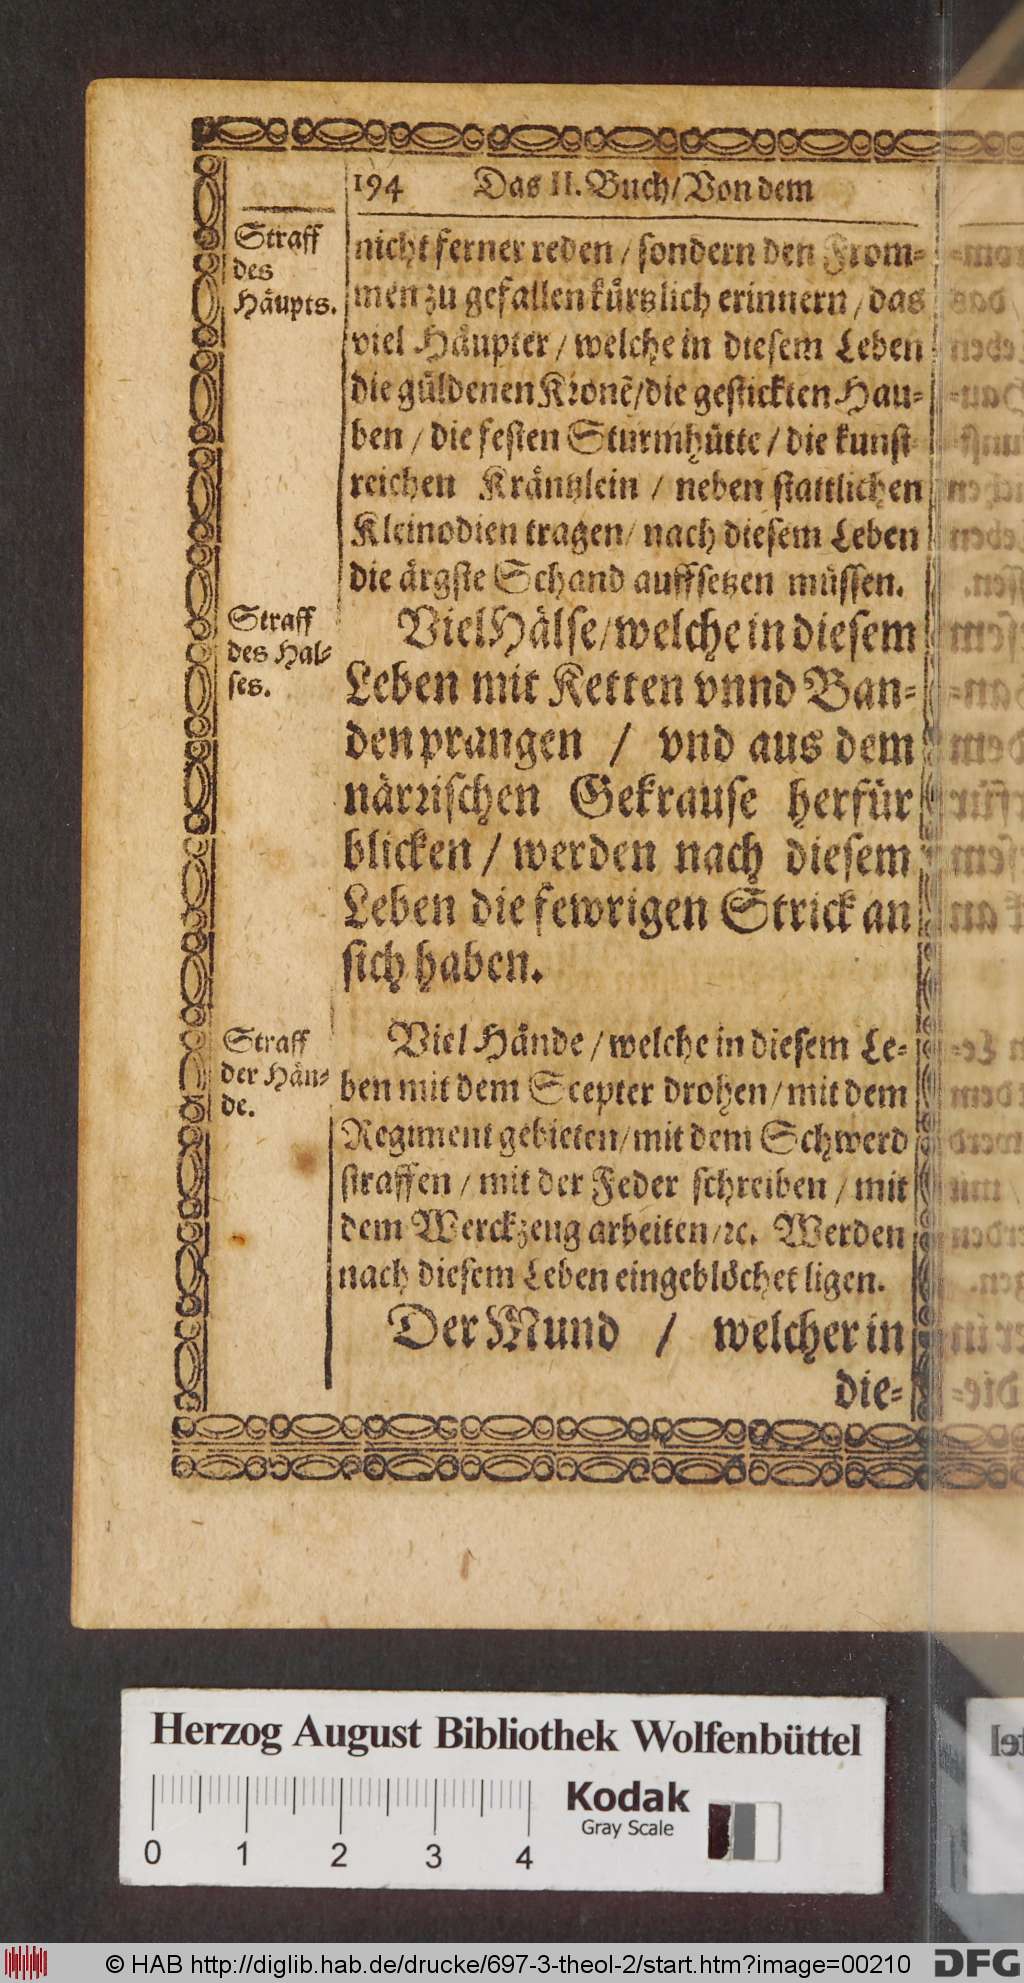 194 Das II. Buch/Von dem
Straff
des
Häupts.
nicht ferner reden / sondern den From-
men zu gefallen kürtzlich erinnern / das
viel Häupter / welche in diesem Leben
die güldenen Kronẽ/die gestickten Hau-
ben / die festen Sturmhütte / die kunst-
reichen Kräntzlein / neben stattlichen
Kleinodien tragen/ nach diesem Leben
die ärgste Schand auffsetzen müssen.
Straff
des Hal-
ses.
Viel Hälse/welche in diesem
Leben mit Ketten vnnd Ban-
den prangen / vnd aus dem
närrischen Gekrause herfür
blicken / werden nach diesem
Leben die fewrigen Strick an
sich haben.
Straff
der Hän-
de.
Viel Hände / welche in diesem Le-
ben mit dem Scepter drohen / mit dem
Regiment gebieten/mit dem Schwerd
straffen / mit der Feder schreiben / mit
dem Werckzeug arbeiten/ꝛc. Werden
nach diesem Leben eingeblöchet ligen.
Der Mund / welcher in
die-
Herzog August Bibliothek Wolfenbüttel
0 1 2 3 4
Kodak
Gray Scale
© HAB http://diglib.hab.de/drucke/697-3-theol-2/start.htm?image=00210
DFG